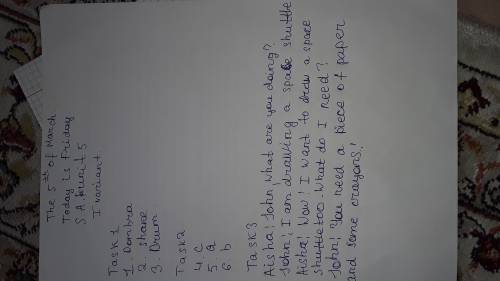 The 5th of March
Today is Friday
S.A. unit 5
I variant
Task 1
1. Dombra
2. share
3. Drum
Task 2
4. c
5 a
6 b
Task 3
Aisha! John, What are you doing?
John! I am drawing a space shuttle
Aisha! Wow! I want to draw a space
shuttle too. What do I need?
John! You need a piece of paper
and some crayons!